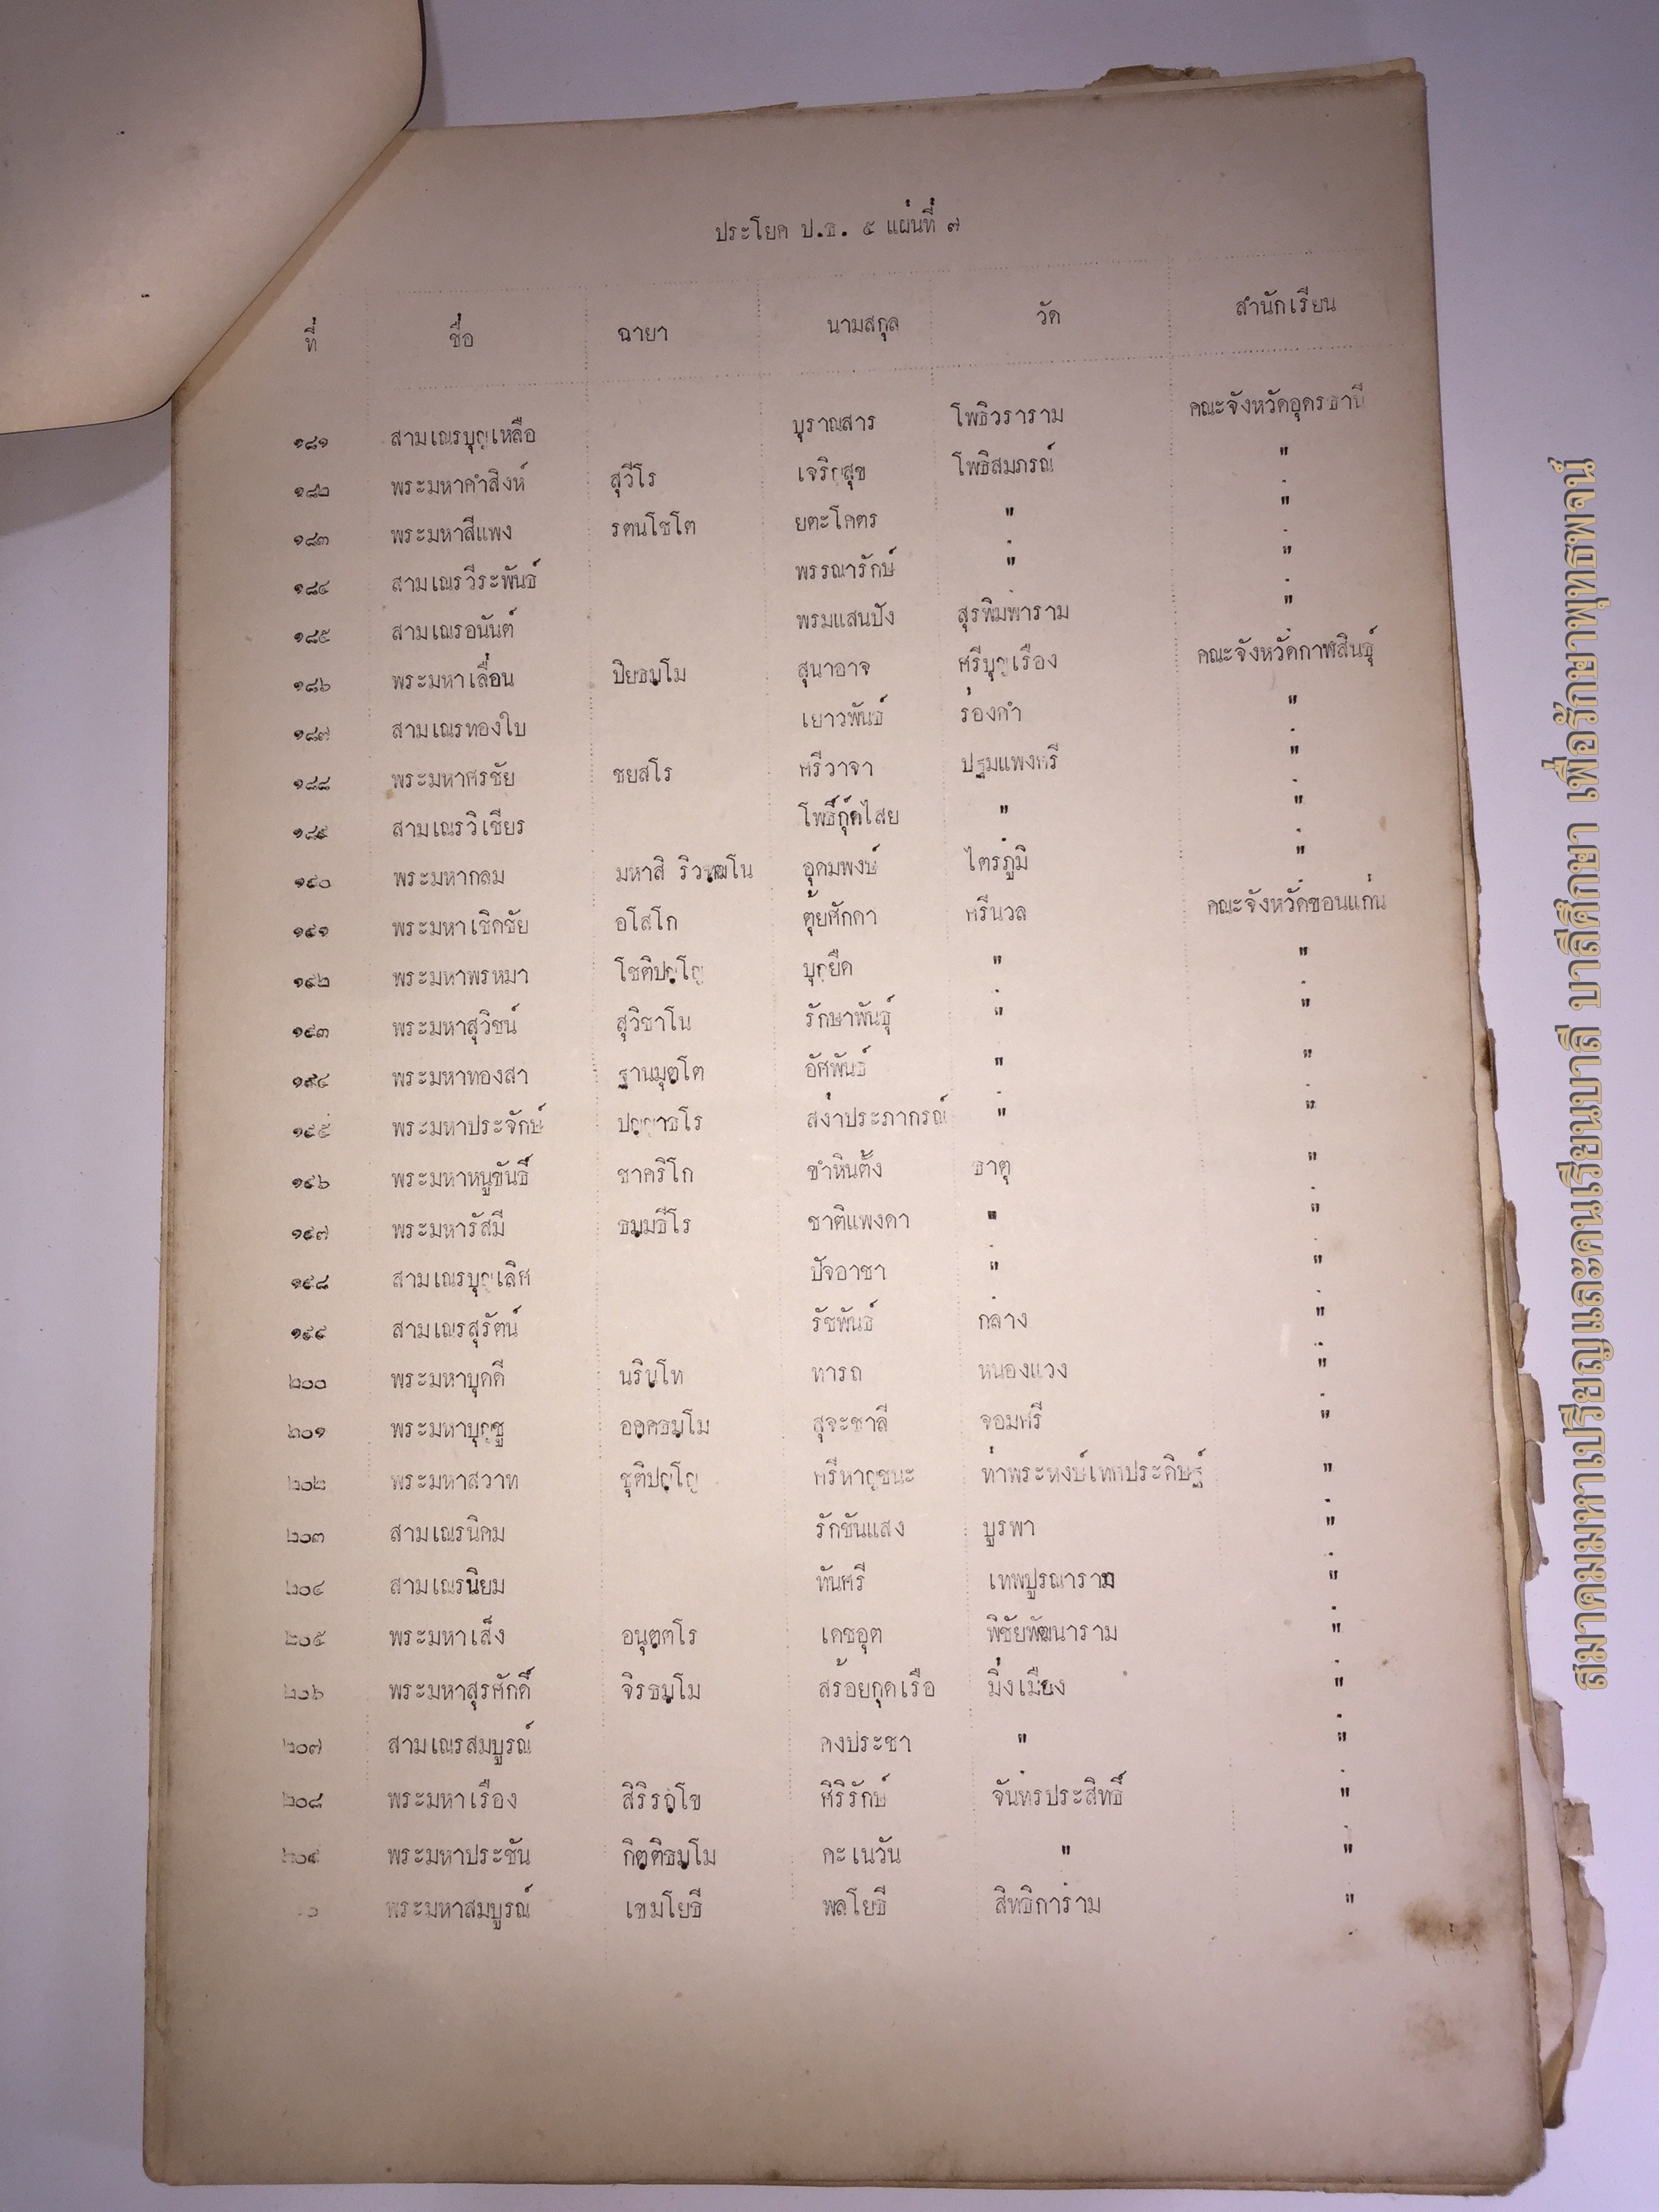 ประโยค ป.ธ. ๕ แผ่นที่ ๗
ที่ ชื่อ ฉายา นามสกุล วัด สำนักเรียน
๑๘๑ สามเณรบุญเหลือ บุราณสาร โพธิวราราม คณะจังหวัดอุดรธานี
๑๘๒ พระมหาคำสิงห์ สุวีโร เจริญสุข โพธิสมภรณ์ "
๑๘๓ พระมหาสีแพง รตนโชโต ยตะโคตร " "
๑๘๔ สามเณรวีระพันธ์ พรรณารักษ์ " "
๑๘๕ สามเณรอนันต์ พรมแสนปัง สุรพิมพาราม "
๑๘๖ พระมหาเลื่อน ปิยธมฺโม สุนาอาจ ศรีบุญเรือง คณะจังหวัดกาฬสินธุ์
๑๘๗ สามเณรทองใบ เยาวพันธ์ ร่องคำ "
๑๘๘ พระมหาศรชัย ชยสโร ศรีวาจา ปฐมแพงศรี "
๑๘๙ สามเณรวิเชียร โพธิ์กุ๊ดไสย " "
๑๙๐ พระมหากลม มหาสิ ริวฑฺฒโน อุดมพงษ์ ไตรภูมิ "
๑๙๑ พระมหาเชิดชัย อโสโก ตุ้ยศักดา ศรีนวล คณะจังหวัดขอนแก่น
๑๙๒ พระมหาพรหมา โชติปญฺโญ บุญยืด " "
๑๙๓ พระมหาสุวิชน์ สุวิชาโน รักษาพันธุ์ " "
๑๙๔ พระมหาทองสา ฐานมุตฺโต อัศพันธ์ " "
๑๙๕ พระมหาประจักษ์ ปญฺญาธโร สง่าประภากรณ์ " "
๑๙๖ พระมหาหนูขันธ์ ชาคริโก ขำหินตั้ง ธาตุ "
๑๙๗ พระมหารัสมี ธมฺมธีโร ชาติแพงดา " "
๑๙๘ สามเณรบุญเลิศ ปัจอาชา " "
๑๙๙ สามเณรสุรัตน์ รัชพันธ์ กลาง "
๒๐๐ พระมหาบุดดี นรินฺโท ทารถ หนองแวง "
๒๐๑ พระมหาบุญชู อคฺคธมฺโม สุจะชาลี จอมศรี "
๒๐๒ พระมหาสวาท ชุติปญฺโญ ศรีหาญชนะ ท่าพระหงษ์เทศประดิษฐ์ "
๒๐๓ สามเณรนิคม รักชันแสง บูรพา "
๒๐๔ สามเณรนิยม ทันศรี เทพปูรณาราม "
๒๐๕ พระมหาเส็ง อนุตฺตโร เดชอุต พิชัยพัฒนาราม "
๒๐๖ พระมหาสุรศักดิ์ จิรธมฺโม สร้อยกุดเรือ มิ่งเมือง "
๒๐๗ สามเณรสมบูรณ์ คงประชา " "
๒๐๘ พระมหาเรือง สิริรกฺโข ศิริรักษ์ จันทรประสิทธิ์ "
๒๐๙ พระมหาประชัน กิตฺติธมฺโม คะเนวัน " "
๐ พระมหาสมบูรณ์ เขมโยธี พลโยธี สิทธิการาม "
สมาคมมหาเปรียญและคนเรียนบาลี บาลีศึกษา เพื่อรักษาพุทธพจน์